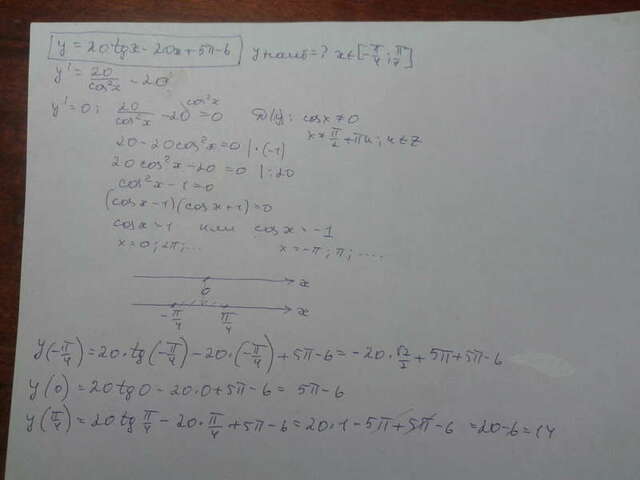 y = 20tgx - 20x + 5π - 6 y наиб = ? x∈[-π/4; π/4]
y' = 20/cos²x - 20
y' = 0: 20/cos²x - 20 = 0 cos²x D(y): cosx ≠ 0
20 - 20cos²x = 0 | ·(-1) x ≠ π/2 + πn; n∈Z
20cos²x - 20 = 0 |:20
cos²x - 1 = 0
(cosx - 1)(cosx + 1) = 0
cosx = 1 или cosx = -1
x = 0; 2π; ... x = -π; π; ....
x
0
x
-π/4 π/4
y(-π/4) = 20·tg(-π/4) - 20·(-π/4) + 5π - 6 = -20·√2/2 + 5π + 5π - 6
y(0) = 20tg0 - 20·0 + 5π - 6 = 5π - 6
y(π/4) = 20tg π/4 - 20·π/4 + 5π - 6 = 20·1 - 5π + 5π - 6 = 20 - 6 = 14